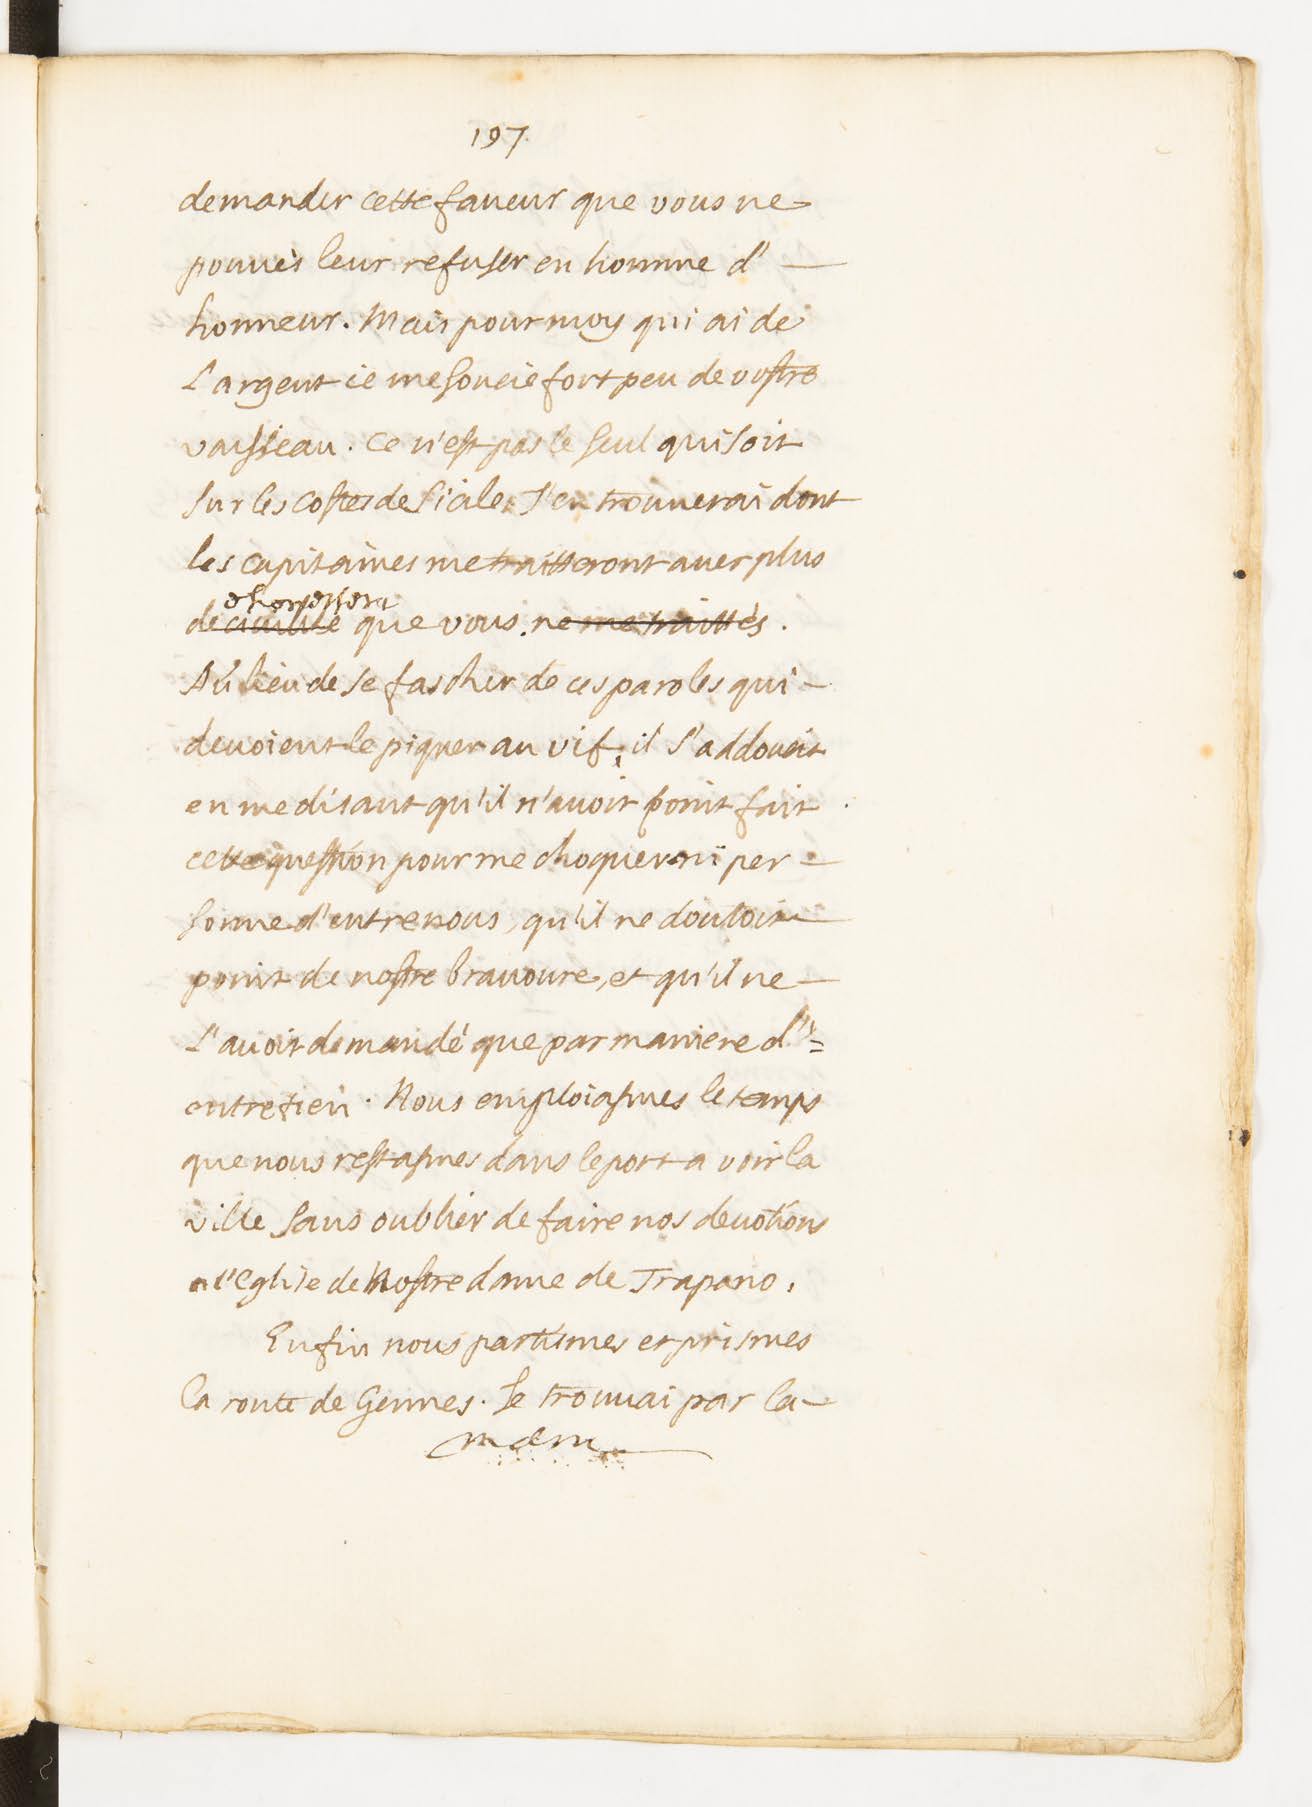 197
demander cette faueur que vous ne
pouués leur refuser en homme d'
honneur. Mais pour moy qui ai de
l'argent ie me soucie fort peu de vostre
vaisseau. Ce n'est pas le seul qui soit
sur les costes de Sicile, J'en trouuerai dont
les capitaines me traitteront auec plus
de ciuilité que vous ne me traittés.
Au lieu de se fascher de ces paroles qui
deuoient le piquer au vif, il s'addoucit
en me disant qu'il n'auoit point fait
cette question pour me choquer ni per-
sonne d'entre nous, qu'il ne doutoit
point de nostre brauoure, et qu'il ne
l'auoit demandé que par maniere d'=
entretien. Nous emploiasmes le temps
que nous restasmes dans le port a voir la
ville sans oublier de faire nos deuotions
a l'Eglise de Nostre dame de Trapano,
Enfin nous partismes et prismes
la route de Gennes. Je trouuai par la